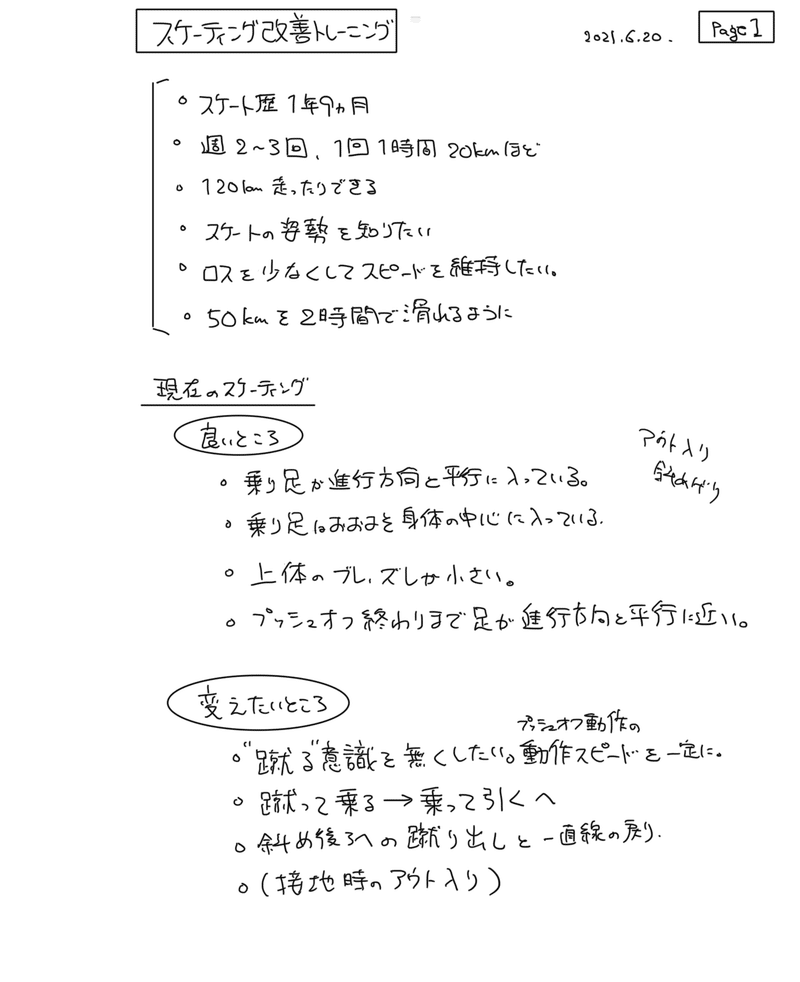 スケーティング改善トレーニング
2021.6.20.
Page 1
スケート歴 1年9ヵ月
週2〜3回、1回1時間 20kmほど
120km 走ったりできる
スケートの姿勢を知りたい
ロスを少なくしてスピードを維持したい。
50kmを2時間で滑れるように
現在のスケーティング
良いところ
アウト入り
斜めけり
乗り足が進行方向と平行に入っている。
乗り足はおおよそ身体の中心に入っている.
上体のブレ、ズレが小さい。
プッシュオフ終わりまで足が進行方向と平行に近い。
変えたいところ
プッシュオフ動作の
"蹴る"意識を無くしたい。動作スピードを一定に。
蹴って乗る→乗って引くへ
斜め後ろへの蹴り出しと一直線の戻り.
(接地時のアウト入り)